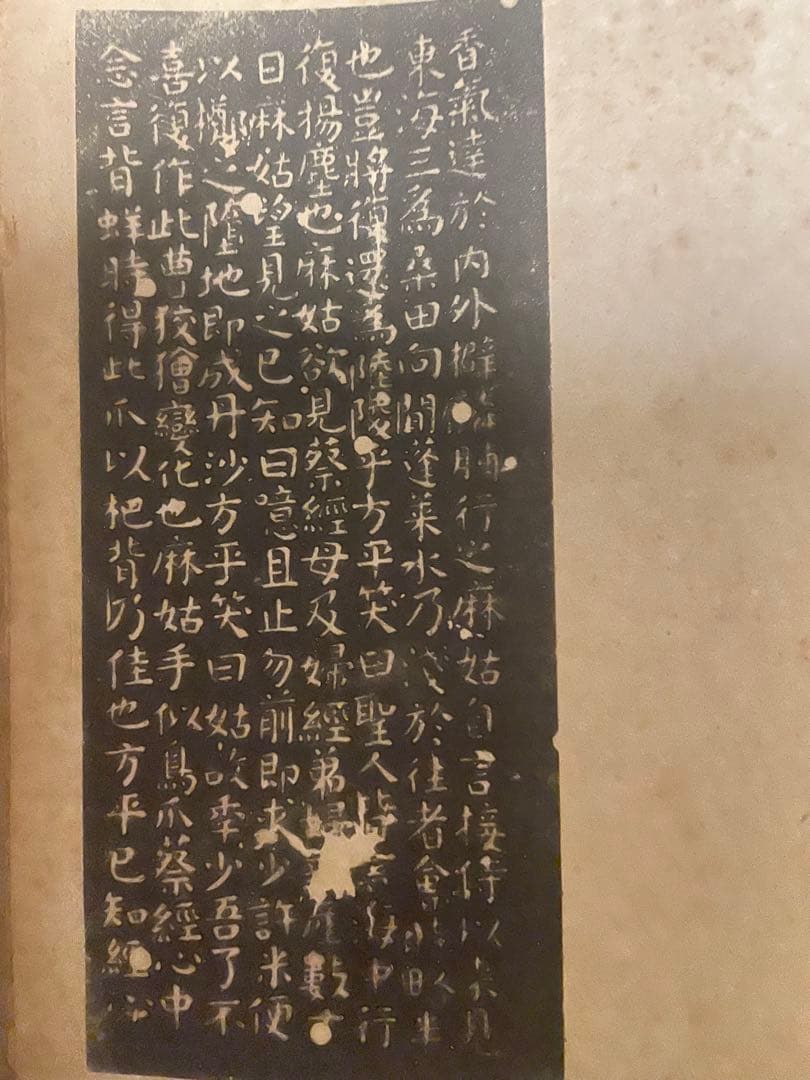 香氣達於內外擗麟脯行之麻姑自言接侍以來見
東海三為桑田向間蓬萊水乃淺於往者會時略半
也豈將復還為陸陵乎方平笑曰聖人皆言海中行
復揚塵也麻姑欲見蔡經母及婦經弟婦產數十
日麻姑望見之已知曰噫且止勿前即求少許米便
以擲之墮地即成丹沙方平笑曰姑故年少吾了不
喜復作此曹狡獪變化也麻姑手似鳥爪蔡經心中
念言背蛘時得此爪以杷背乃佳也方平已知經心